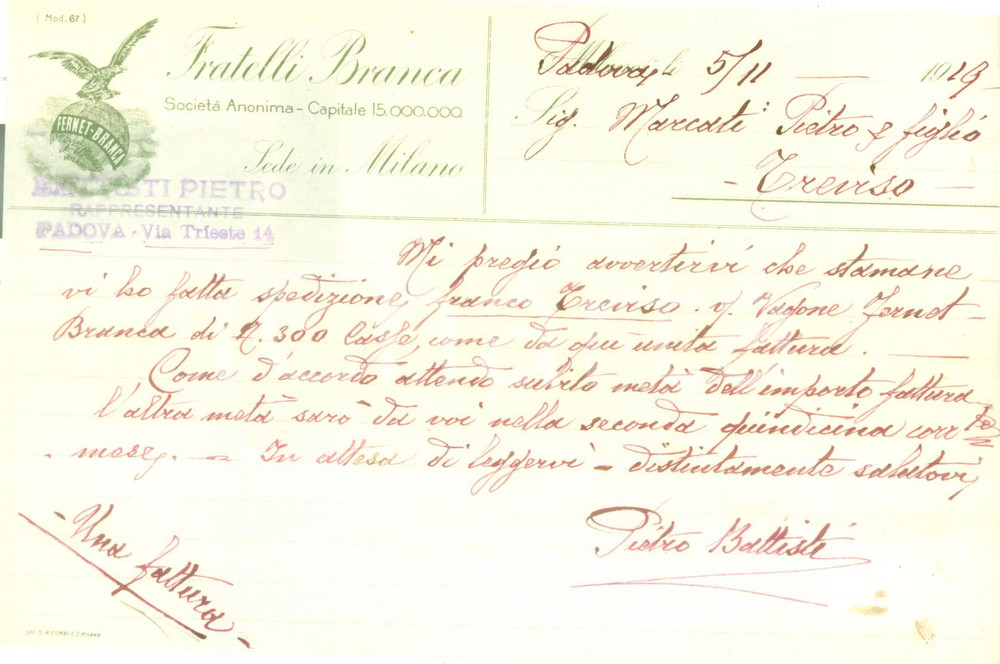 (Mod. 67)
Fratelli Branca
Società Anonima - Capitale 15.000.000
Sede in Milano
FERNET-BRANCA
BATTISTI PIETRO
RAPPRESENTANTE
PADOVA - Via Trieste 14
Padova, 5/11 — 1919
Sig. Marcati Pietro & figlio
- Treviso -
Mi pregio avvertirvi che stamane
vi ho fatta spedizione, franco Treviso. v/ Vagone Fernet-
Branca di N. 300 Casse, come da qui unita fattura. —
Come d'accordo attendo subito metà dell'importo fattura -
l'altra metà sarò da voi nella seconda quindicina corrte
mese. - In attesa di leggervi - distintamente salutovi,
Pietro Battisti
- Una fattura -